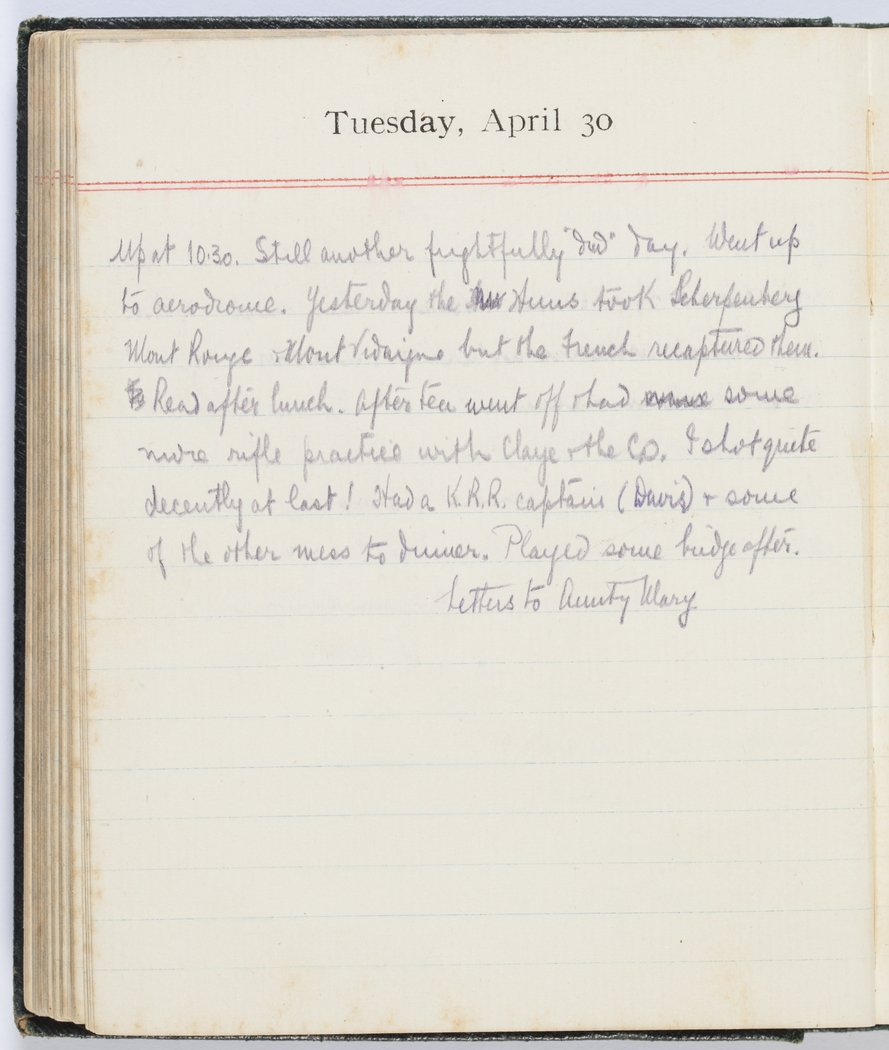 Tuesday, April 30
Up at 10.30. Still another frightfully "dud" day. Went up
to aerodrome. Yesterday the Huns took Scherpenberg
Mont Rouge & Mont Vidaigne but the French recaptured them.
Read after lunch. After tea went off & had some
more rifle practice with Claye & the CO. I shot quite
decently at last! Had a K.R.R. captain (Davis) & some
of the other mess to dinner. Played some bridge after.
Letters to Aunty Mary